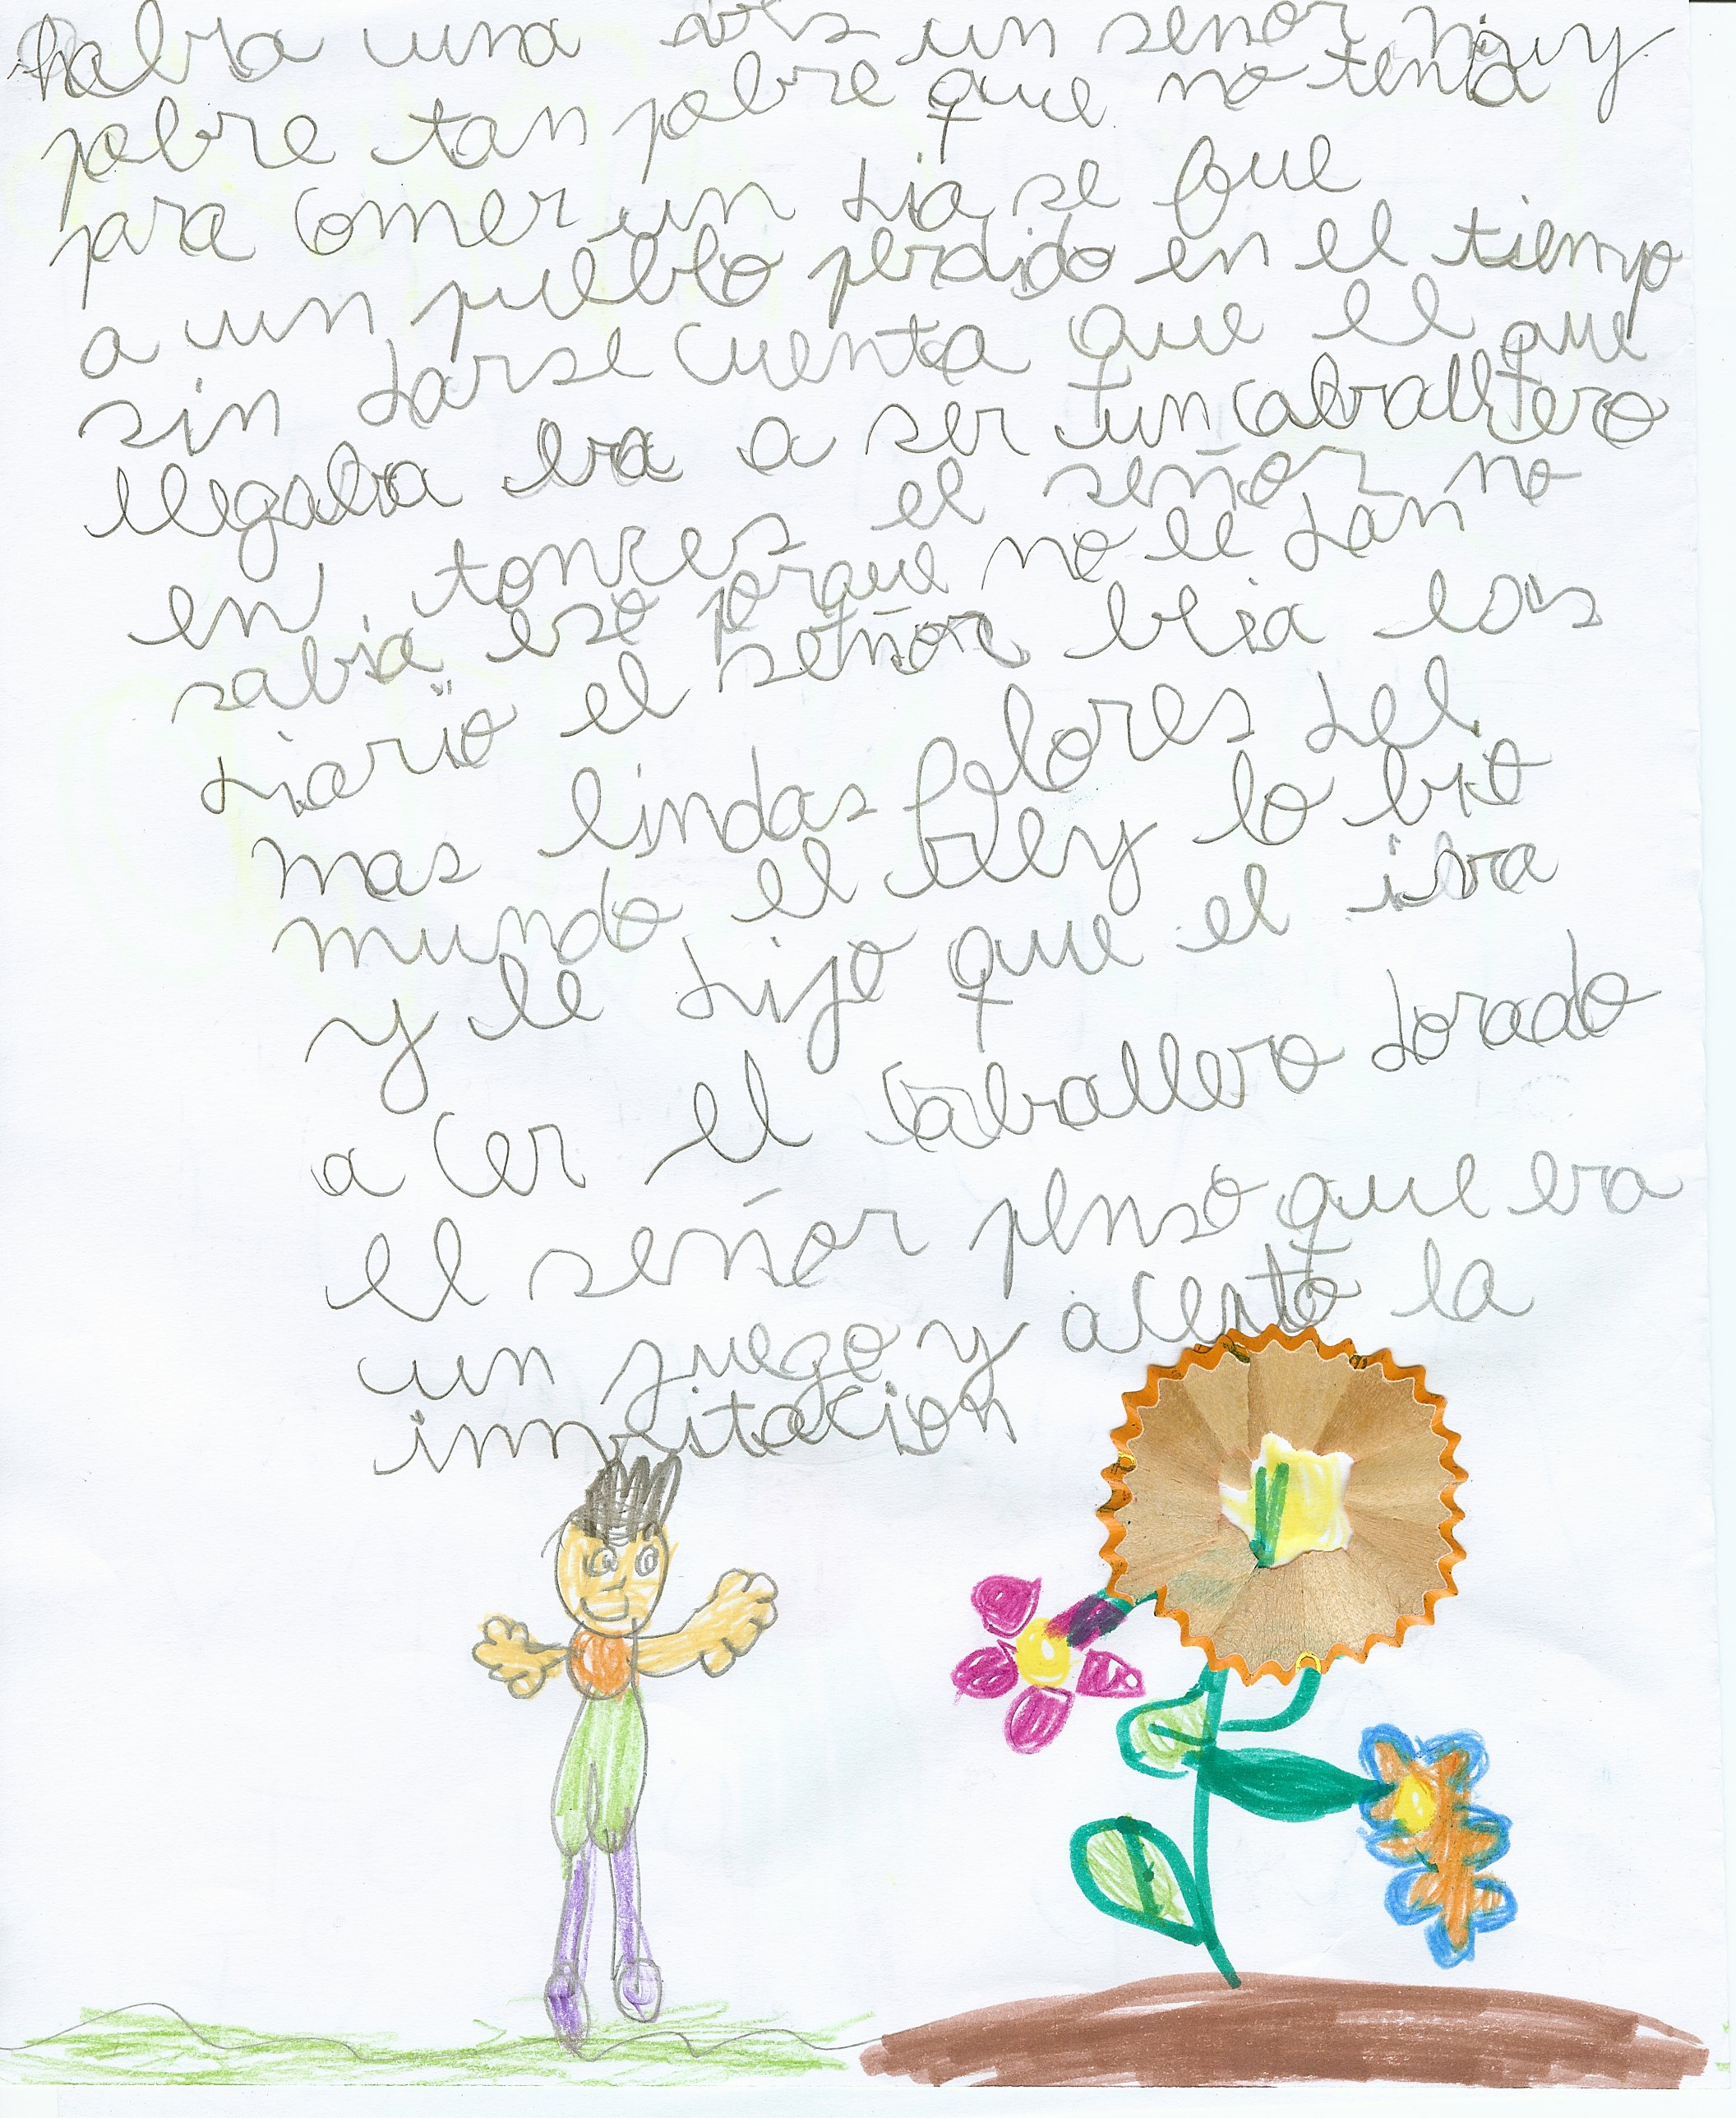 habia una ves un señor muy
pobre tan pobre que no tenia
para comer un dia se fue
a un pueblo perdido en el tiempo
sin darse cuenta que el que
llegaba iva a ser un caballero
en tonces el señor no
sabia eso porque no le dan
diario el señor beia los
mas lindas felores del
mundo el rrey lo bio
y le dijo que el iba
a cer el caballero dorado
el señor penso que era
un juego y acepto la
invitacion